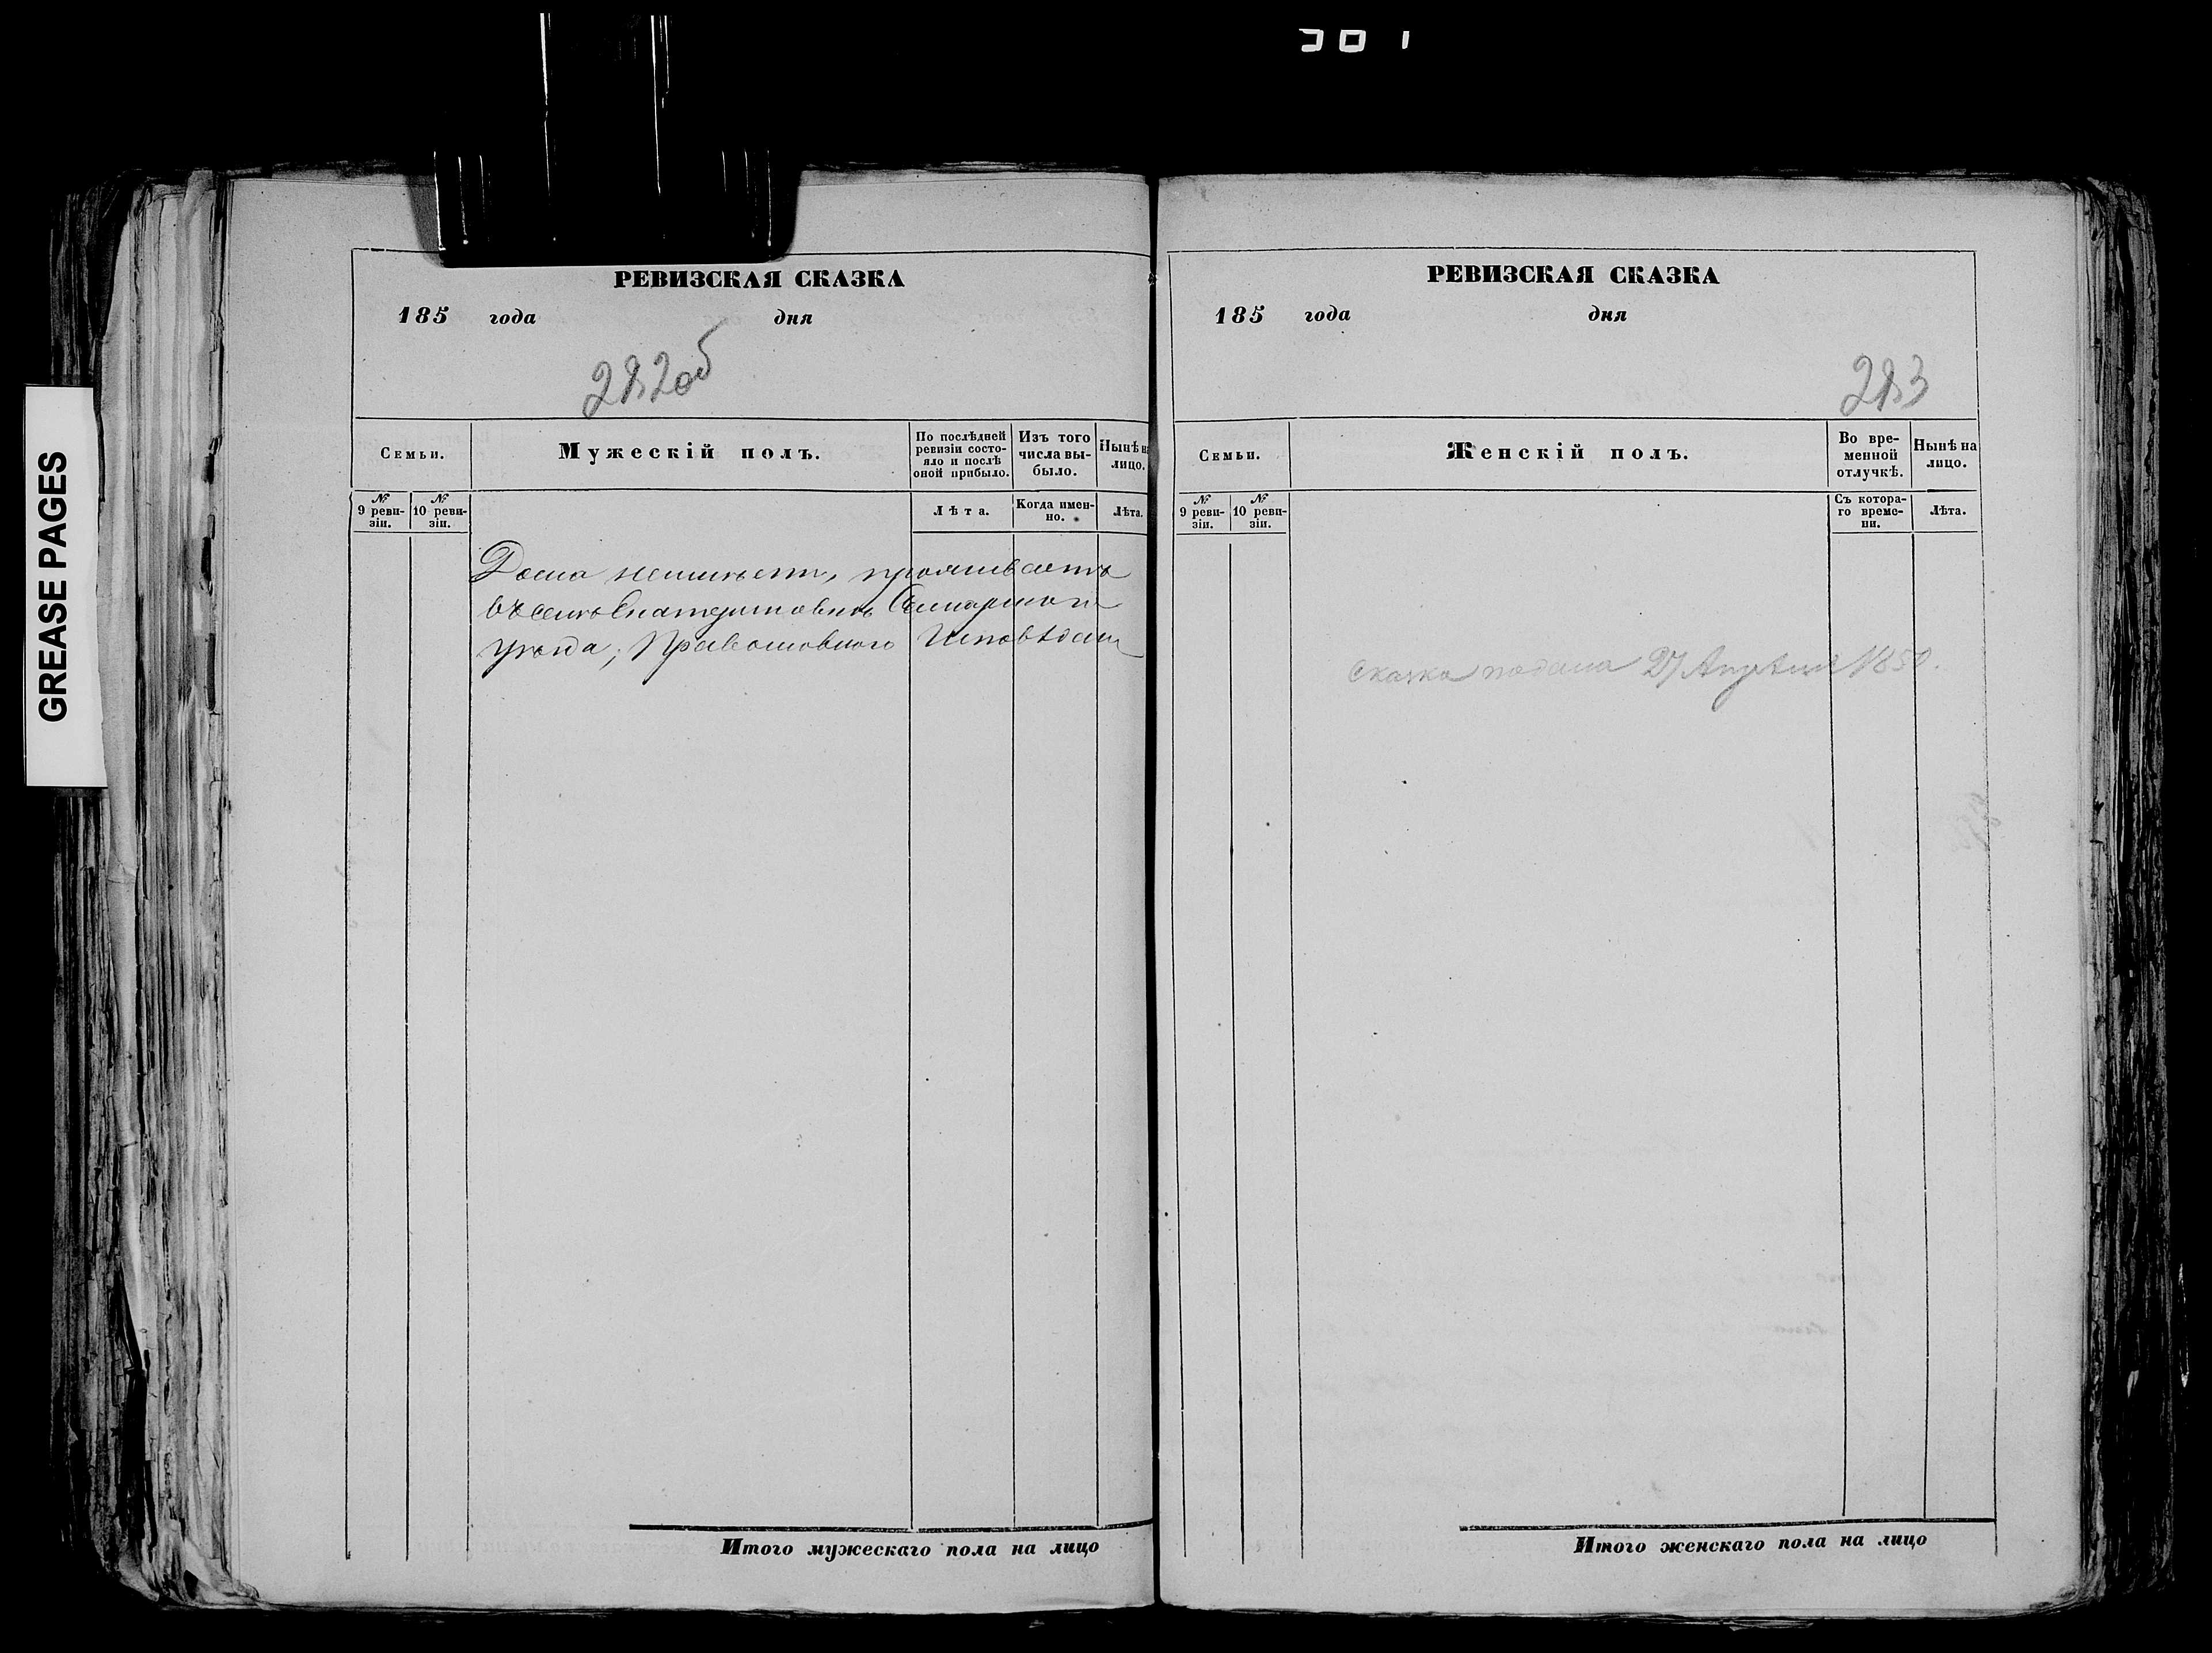 301
GREASE PAGES
РЕВИЗСКАЯ СКАЗКА
185 года дня
282об
Семьи.
Мужескій полъ.
По послѣдней ревизіи состо-
яло и послѣ оной прибыло.
Изъ того числа вы-
было.
Нынѣ на лицо.
№ 9 реви-
зіи.
№ 10 реви-
зіи.
Лѣта.
Когда имен-
но.
Лѣта.
Дома неимѣетъ, проживаетъ
въ селѣ Екатериновкѣ Самарскаго
уѣзда; Православного Исповѣдан
Итого мужескаго пола на лицо
РЕВИЗСКАЯ СКАЗКА
185 года дня
283
Семьи.
Женскій полъ.
Во вре-
менной
отлучкѣ.
Нынѣ на
лицо.
№ 9 реви-
зіи.
№ 10 реви-
зіи.
Съ котора-
го време-
ни.
Лѣта.
Сказка подана 27 Апрѣля 1850.
Итого женскаго пола на лицо